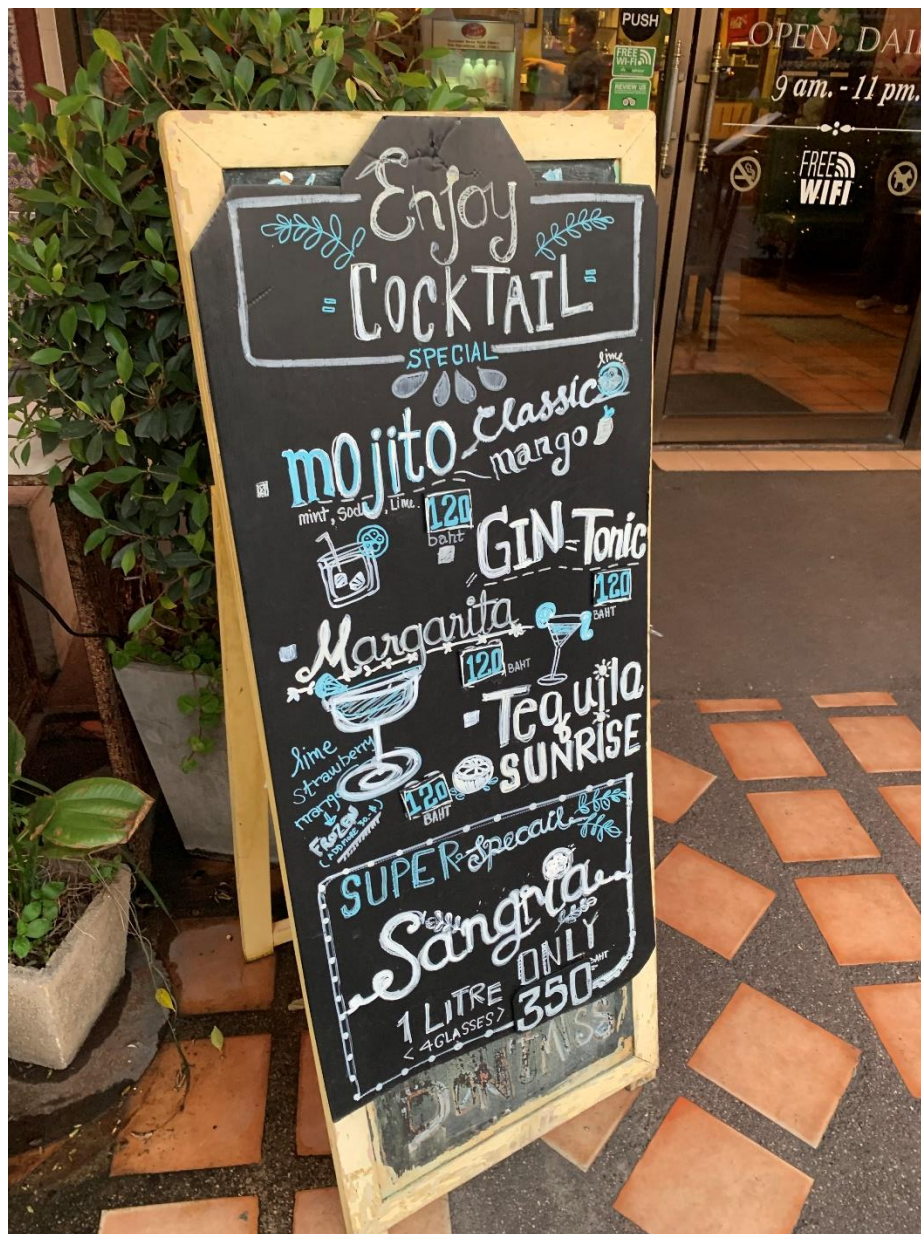 PUSH
FREE
WI-FI
REVIEW US
OPEN DAI
9 am. - 11 pm.
FREE
WIFI
Enjoy
COCKTAIL
SPECIAL
lime
mojito classic
mango
mint, soda, Lime.
120
baht
GIN Tonic
120
BAHT
Margarita
120 BAHT
Tequila
SUNRISE
lime
strawberry
mango
FROZEN
(ADD MORE 30.-฿)
120
BAHT
SUPER Specail
Sangria
1 LITRE ONLY
<4GLASSES> 350 BAHT
DON'T MISS